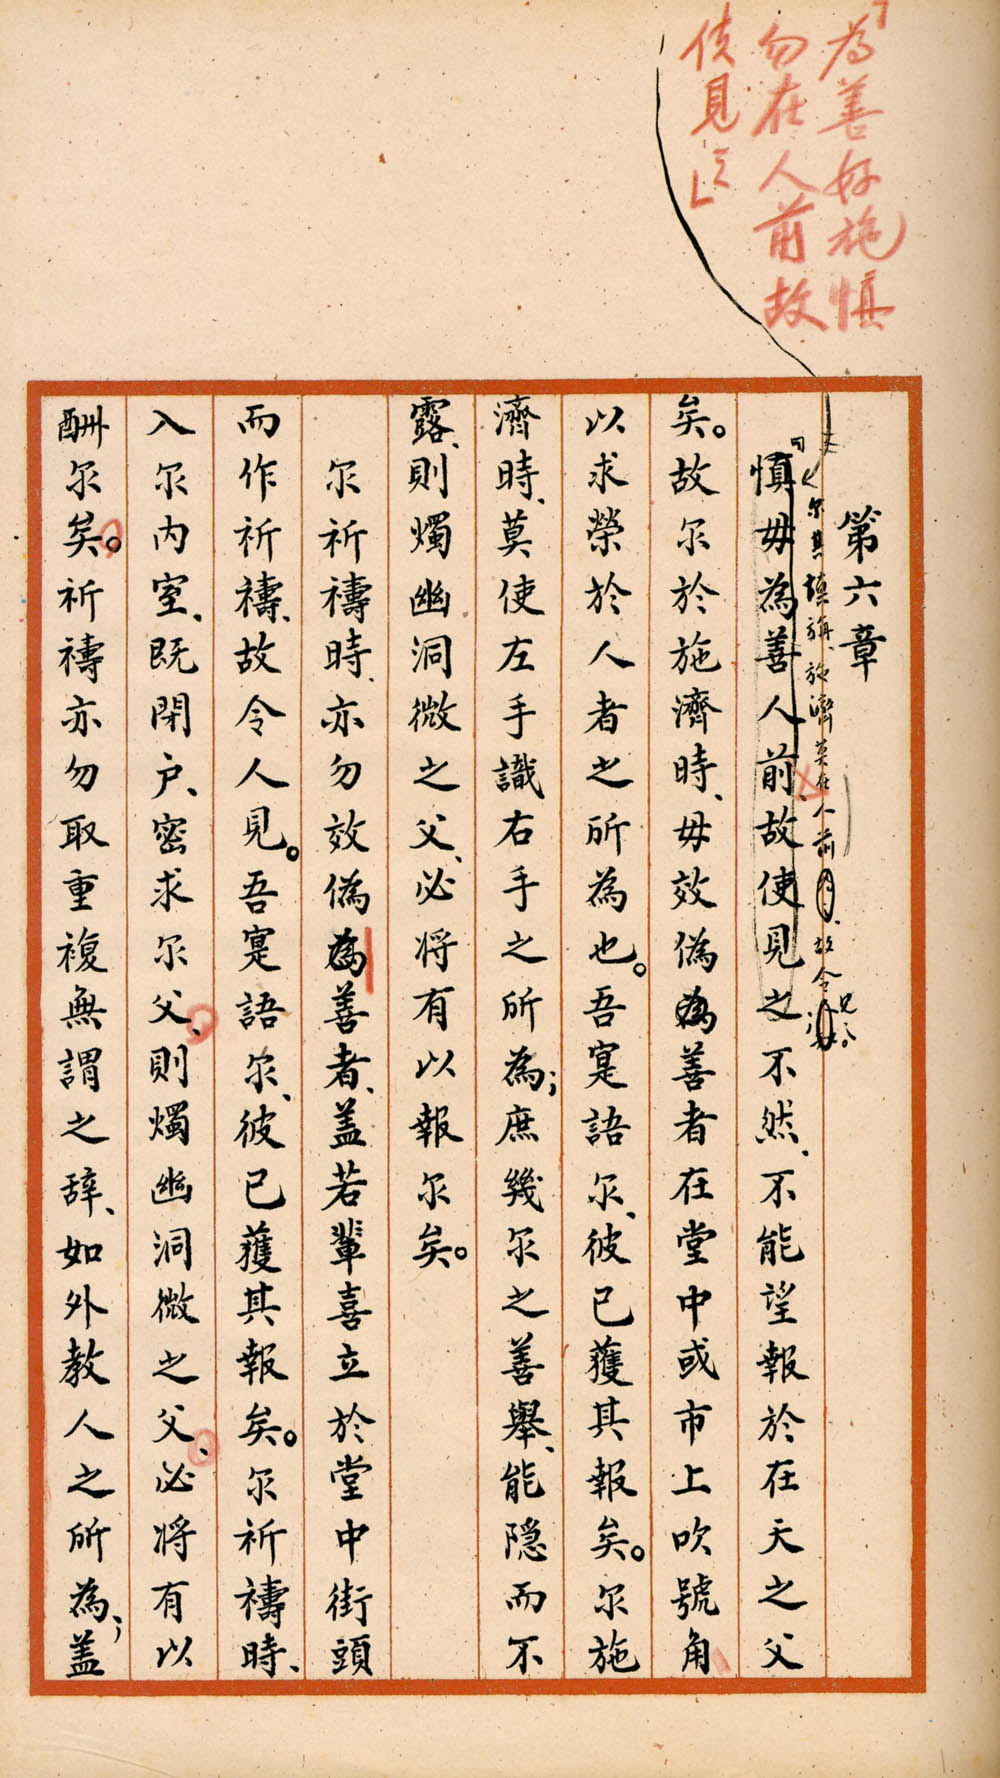 「為善好施慎
勿在人前故
使見之」
第六章
尔其慎旃、施濟莫在人前、故令
慎毋為善人前、故使見之不然、不能望報於在天之父
矣。故尔於施濟時、毋效偽為善者在堂中或市上吹號角
以求榮於人者之所為也。吾寔語尔、彼已獲其報矣。尔施
濟時、莫使左手識右手之所為；庶幾尔之善舉、能隱而不
露、則燭幽洞微之父、必將有以報尔矣。
尔祈禱時、亦勿效偽為善者、蓋若輩喜立於堂中街頭
而作祈禱、故令人見。吾寔語尔、彼已獲其報矣。尔祈禱時、
入尔內室、既閉戶、密求尔父、則燭幽洞微之父、必將有以
酬尔矣。祈禱亦勿取重複無謂之辭、如外教人之所為；蓋